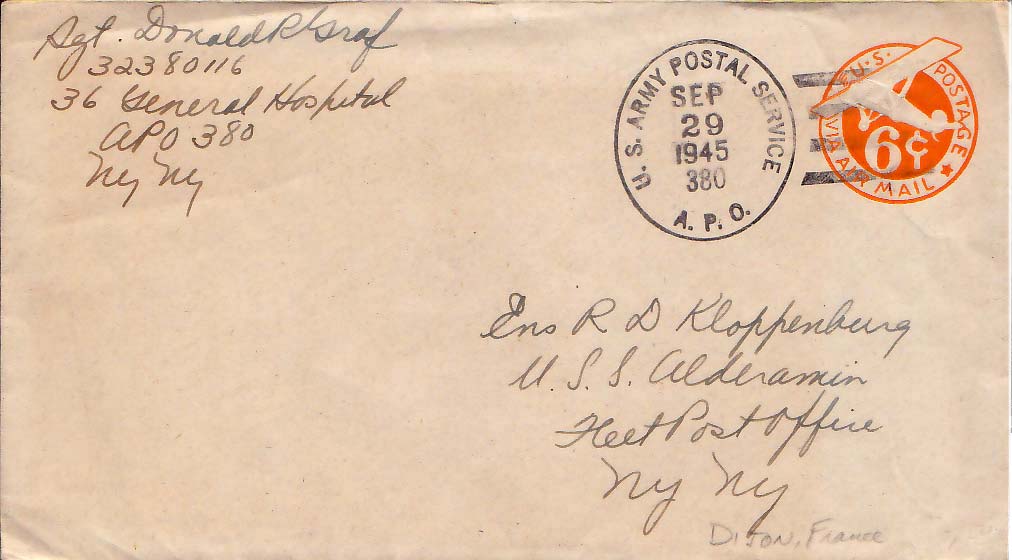 Sgt. Donald R Graf
32380116
36 General Hospital
APO 380
Ny Ny
U. S. ARMY POSTAL SERVICE
SEP
29
1945
380
A. P. O.
U.S. POSTAGE
6¢
VIA AIR MAIL
Ens R D Kloppenburg
U. S. S. Alderamin
Fleet Post Office
Ny Ny
DIJON, France